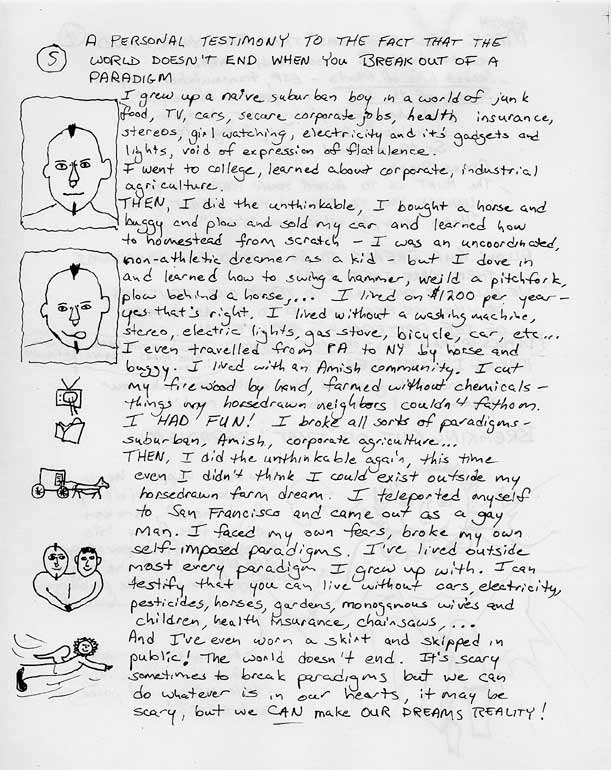 5
A PERSONAL TESTIMONY TO THE FACT THAT THE
WORLD DOESN'T END WHEN YOU BREAK OUT OF A
PARADIGM
I grew up a naive suburban boy in a world of junk
food, TV, cars, secure corporate jobs, health insurance,
stereos, girl watching, electricity and it's gadgets and
lights, void of expression of flatulence.
I went to college, learned about corporate, industrial
agriculture.
THEN, I did the unthinkable, I bought a horse and
buggy and plow and sold my car and learned how
to homestead from scratch – I was an uncoordinated,
non-athletic dreamer as a kid – but I dove in
and learned how to swing a hammer, weild a pitchfork,
plow behind a horse,... I lived on $1200 per year –
yes that's right. I lived without a washing machine,
stereo, electric lights, gas stove, bicycle, car, etc...
I even travelled from PA to NY by horse and
buggy. I lived with an Amish community. I cut
my firewood by hand, farmed without chemicals –
things my horsedrawn neighbors couldn't fathom.
I HAD FUN! I broke all sorts of paradigms –
suburban, Amish, corporate agriculture...
THEN, I did the unthinkable again, this time
even I didn't think I could exist outside my
horsedrawn farm dream. I teleported myself
to San Francisco and came out as a gay
man. I faced my own fears, broke my own
self-imposed paradigms. I've lived outside
most every paradigm I grew up with. I can
testify that you can live without cars, electricity,
pesticides, horses, gardens, monogamous wives and
children, health insurance, chainsaws,...
And I've even worn a skirt and skipped in
public! The world doesn't end. It's scary
sometimes to break paradigms but we can
do whatever is in our hearts, it may be
scary, but we CAN make OUR DREAMS REALITY!